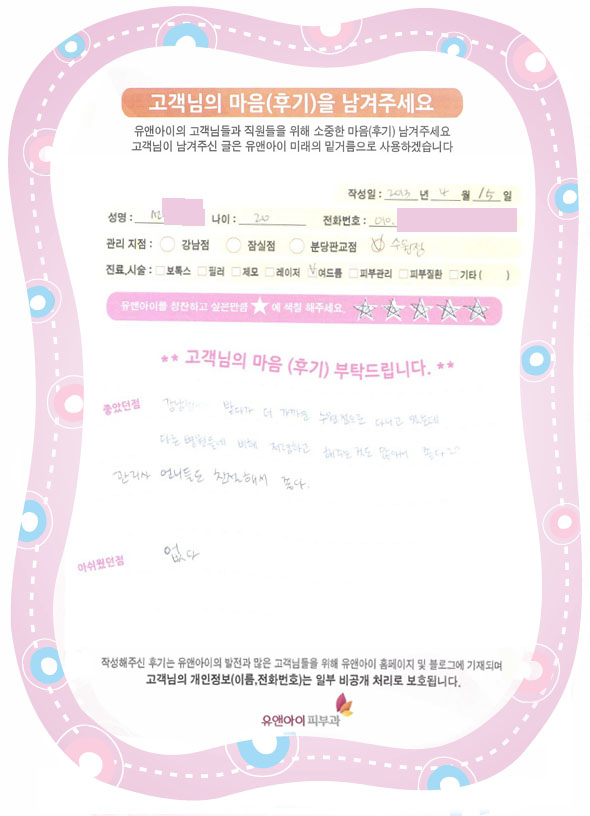 고객님의 마음(후기)을 남겨주세요
유앤아이의 고객님들과 직원들을 위해 소중한 마음(후기) 남겨주세요
고객님이 남겨주신 글은 유앤아이 미래의 밑거름으로 사용하겠습니다
작성일 : 2013 년 4 월 15 일
성명 : 나이 : 20 전화번호 : 010.
관리 지점 : 강남점 잠실점 분당판교점 수원점
진료,시술 : 보톡스 필러 제모 레이저 여드름 피부관리 피부질환 기타 ( )
유앤아이를 칭찬하고 싶은만큼 ★에 색칠 해주세요.
** 고객님의 마음 (후기) 부탁드립니다. **
좋았던점 더 가까운 수원점으로 다니고 있는데
다른 병원들에 비해 저렴하고 해주는것도 많아서 좋다^^
관리사 언니들도 친절해서 좋다.
아쉬웠던점 없다
작성해주신 후기는 유앤아이의 발전과 많은 고객님들을 위해 유앤아이 홈페이지 및 블로그에 기재되며
고객님의 개인정보(이름,전화번호)는 일부 비공개 처리로 보호됩니다.
유앤아이피부과